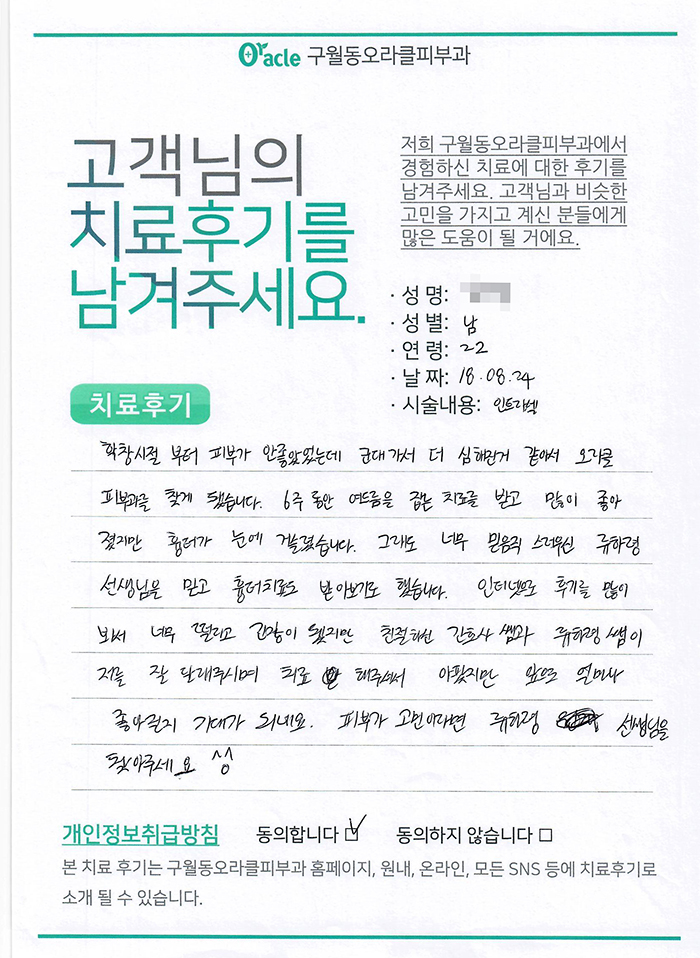 Oracle 구월동오라클피부과
고객님의
치료후기를
남겨주세요.
저희 구월동오라클피부과에서
경험하신 치료에 대한 후기를
남겨주세요. 고객님과 비슷한
고민을 가지고 계신 분들에게
많은 도움이 될 거에요.
· 성 명:
· 성 별: 남
· 연 령: 22
· 날 짜: 18.08.24
· 시술내용: 인트라셀
치료후기
학창시절 부터 피부가 안좋았었는데 군대가서 더 심해진거 같아서 오라클
피부과를 찾게 됐습니다. 6주 동안 여드름을 잡는 치료를 받고 많이 좋아
졌지만 흉터가 눈에 걸렸습니다. 그래도 너무 믿음직 스러우신 류하령
선생님을 믿고 흉터치료도 받아보기로 했습니다. 인터넷으로 후기를 많이
봐서 너무 떨리고 긴장이 됐지만 친절하신 간호사 쌤과 류하령 쌤이
저를 잘 달래주시며 치료 해주셔서 아팠지만 앞으로 얼마나
좋아질지 기대가 되네요. 피부가 고민이라면 류하령 선생님을
찾아주세요 ^^
개인정보취급방침 동의합니다 동의하지 않습니다
본 치료 후기는 구월동오라클피부과 홈페이지, 원내, 온라인, 모든 SNS 등에 치료후기로
소개 될 수 있습니다.